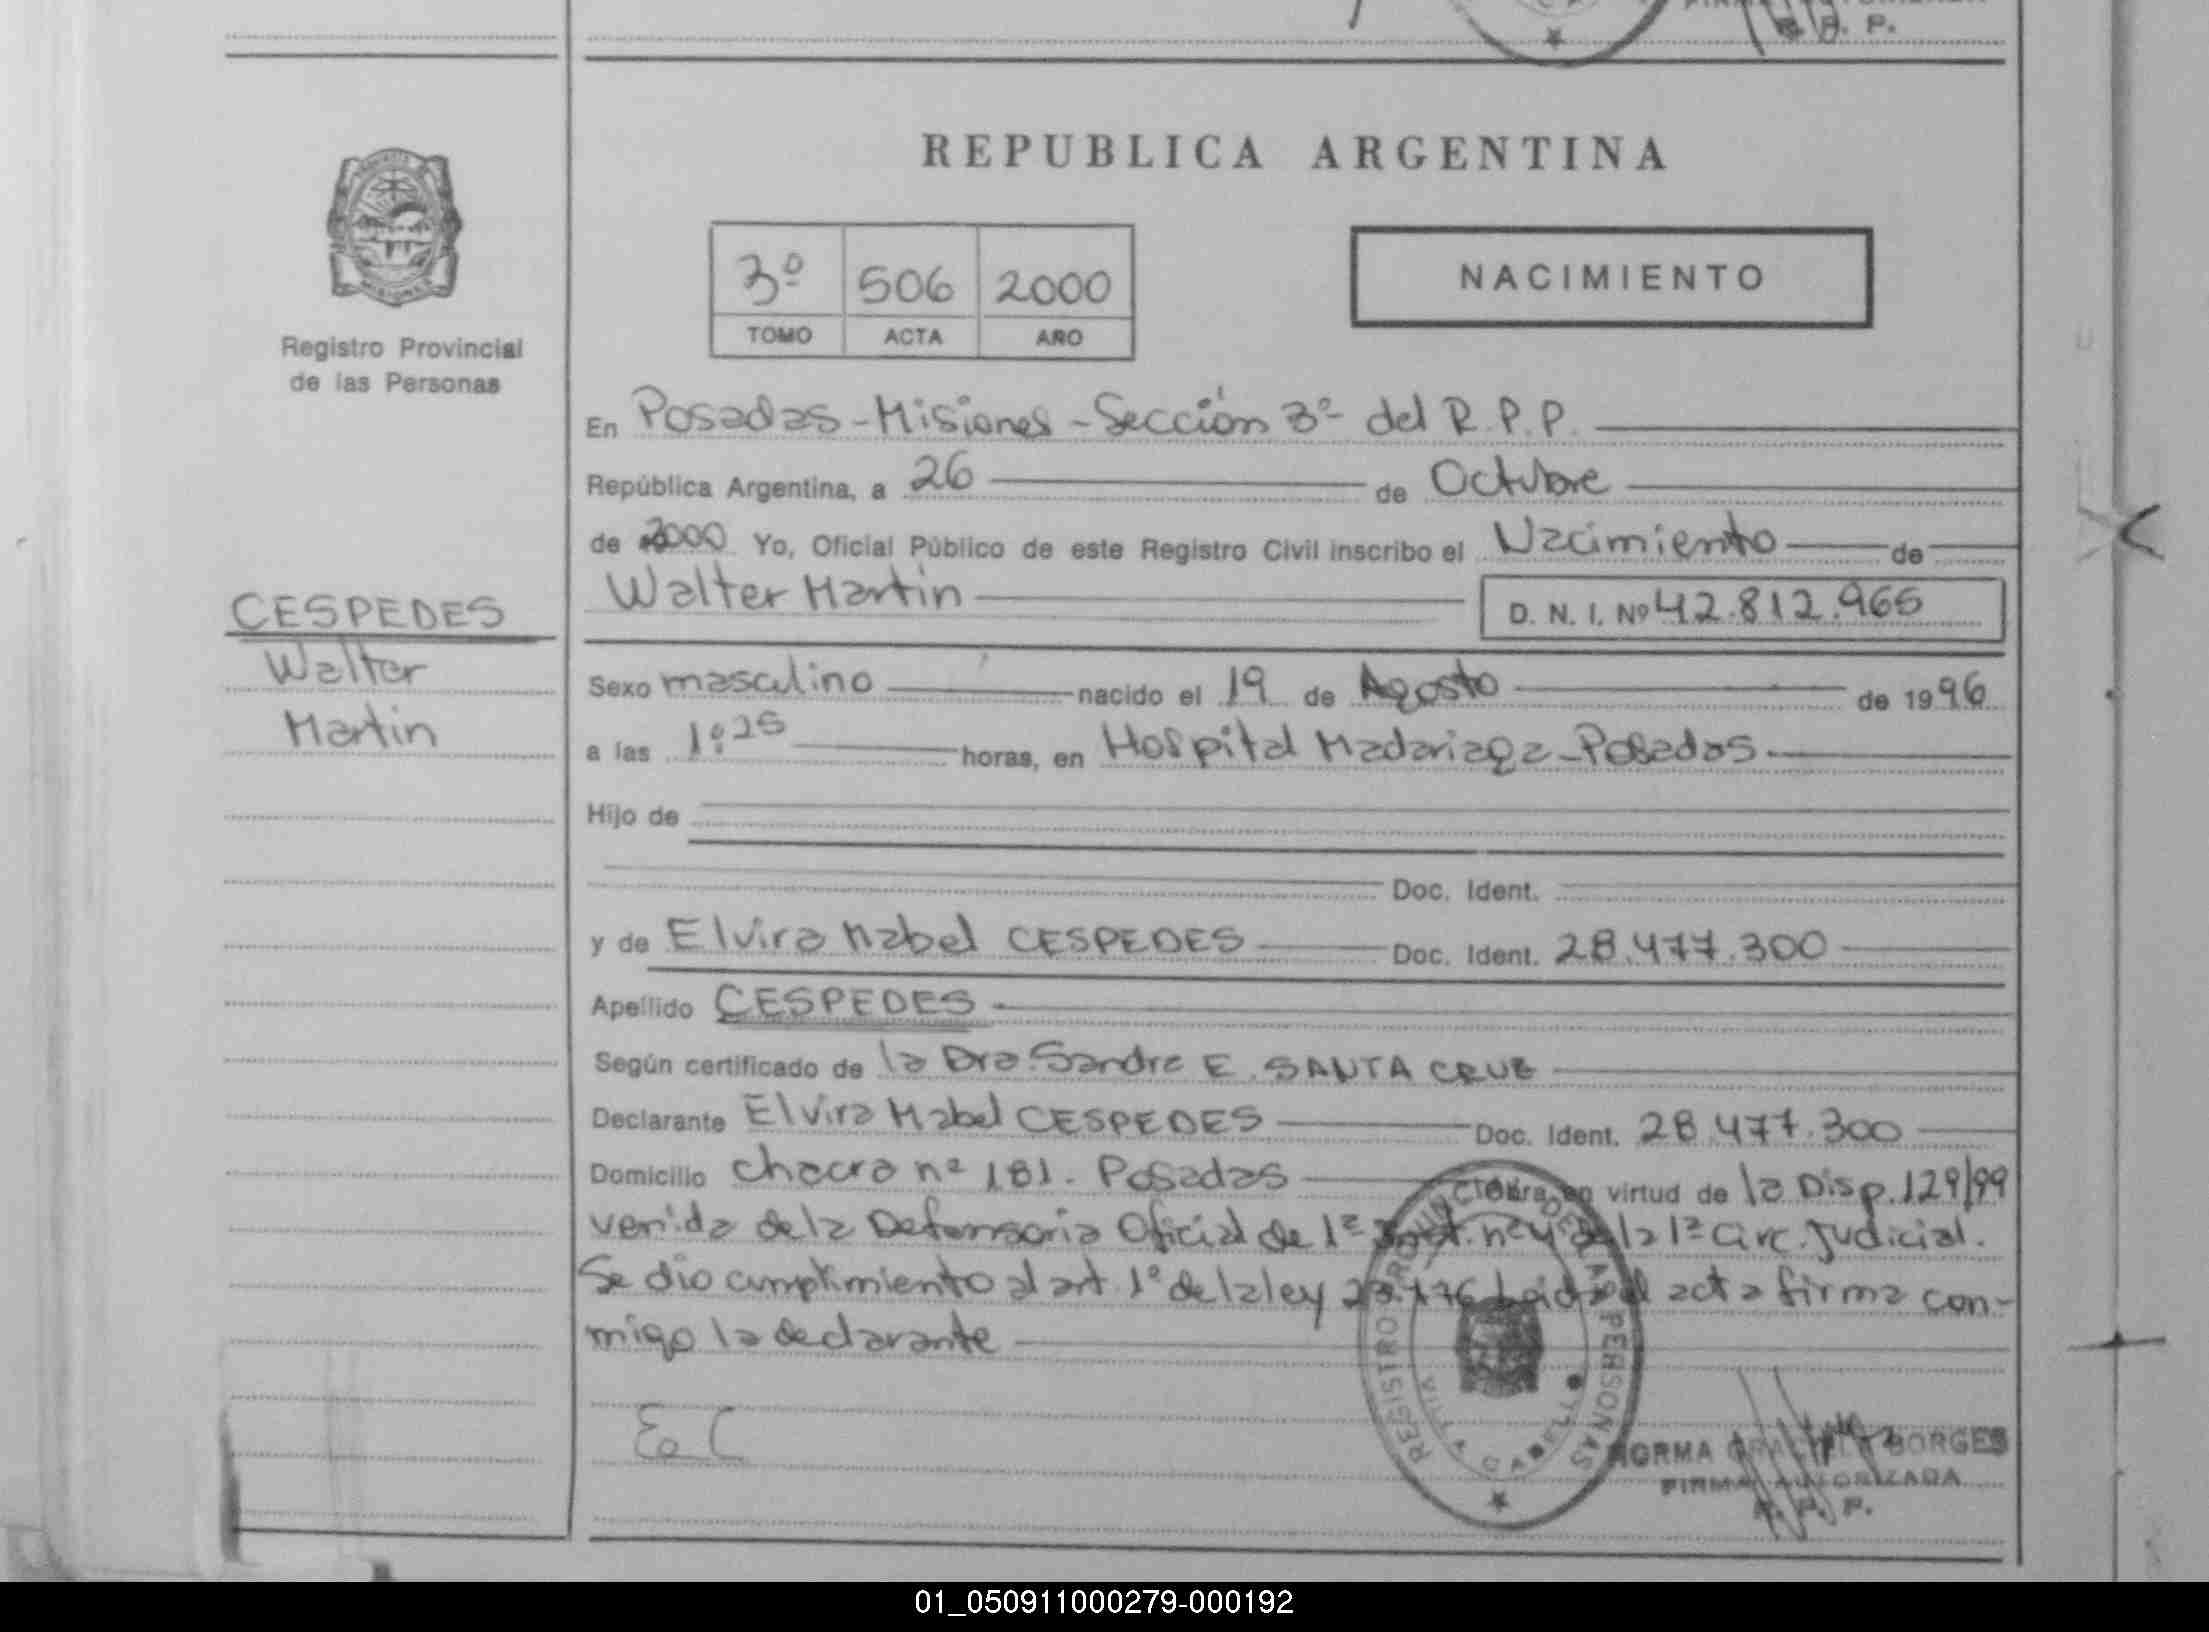 R. P. P.
REPUBLICA ARGENTINA
3º 506 2000
TOMO ACTA AÑO
NACIMIENTO
Registro Provincial
de las Personas
En Posadas - Misiones - Sección 3º del R.P.P.
República Argentina, a 26 de Octubre
de 2000 Yo, Oficial Público de este Registro Civil inscribo el Nacimiento de
Walter Martin D. N. I. Nº 42.812.965
CESPEDES
Walter
Martin
Sexo masculino nacido el 19 de Agosto de 1996
a las 1:25 horas, en Hospital Madariaga - Posadas
Hijo de
Doc. Ident.
y de Elvira Mabel CESPEDES Doc. Ident. 28.477.300
Apellido CESPEDES
Según certificado de la Dra. Sandra E. SANTA CRUZ
Declarante Elvira Mabel CESPEDES Doc. Ident. 28.477.300
Domicilio Chacra nº 181. Posadas en virtud de la Disp. 129/99
venida de la Defensoria Oficial de 1ª Inst. nº 4 de la 1ª Circ. Judicial.
Se dio cumplimiento al art. 1º de la ley 23.776 Leida el acta firma con-
migo la declarante
E C
REGISTRO PROVINCIAL DE LAS PERSONAS
NORMA GRACIELA BORGES
FIRMA AUTORIZADA
R. P. P.
01_050911000279-000192